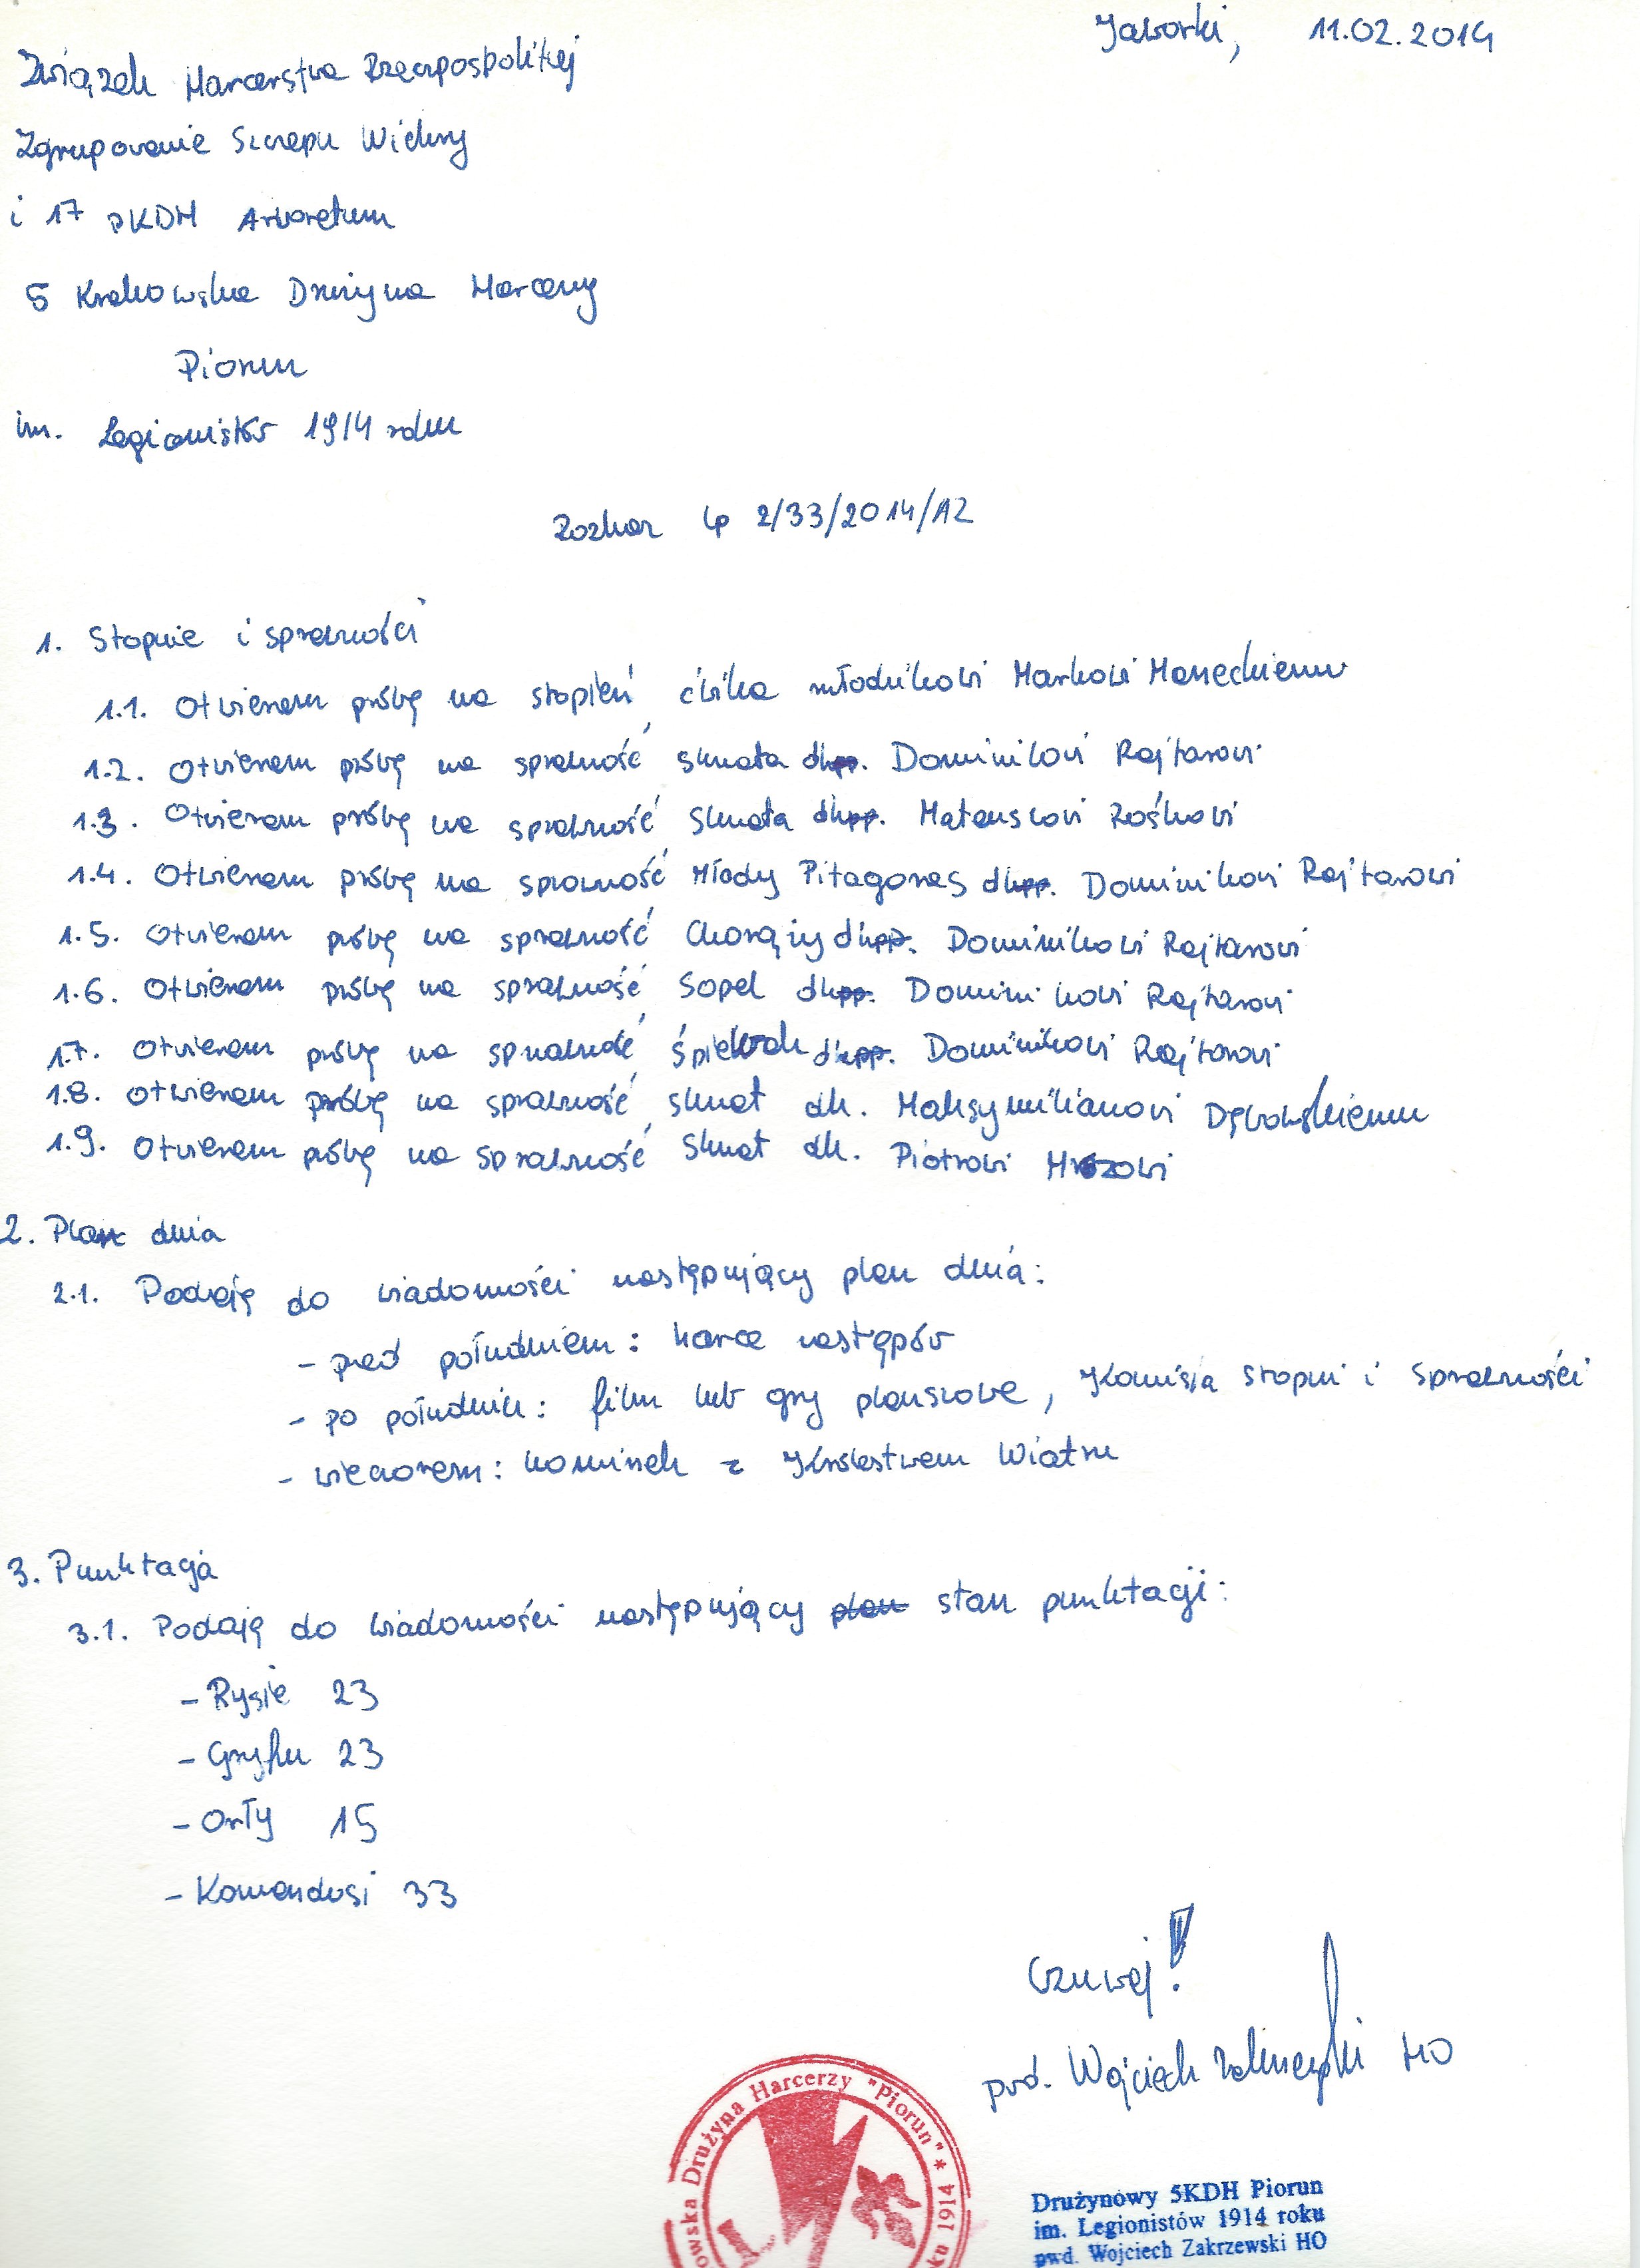 Jaworki, 11.02.2014
Związek Harcerstwa Rzeczpospolitej
Zgrupowanie Szczepu Wichry
i 17 PKDH Arboretum
5 Krakowska Drużyna Harcerzy
Piorun
im. Legionistów 1914 roku
Rozkaz Lp 2/33/2014/AZ
1. Stopnie i sprawności
1.1. Otwieram próbę na stopień ćwika młodzikowi Markowi
1.2. Otwieram próbę na sprawność skneta dh. Dominikowi Rajtarowi
1.3. Otwieram próbę na sprawność skneta dh. Mateuszowi Rośkowi
1.4. Otwieram próbę na sprawność Młody Pitagoras dh. Dominikowi Rajtarowi
1.5. Otwieram próbę na sprawność Chorąży dh. Dominikowi Rajtarowi
1.6. Otwieram próbę na sprawność Sopel dh. Dominikowi Rajtarowi
1.7. Otwieram próbę na sprawność Śpiewak dh. Dominikowi Rajtarowi
1.8. Otwieram próbę na sprawność sknet dh. Maksymilianowi Dębowskiemu
1.9. Otwieram próbę na sprawność sknet dh. Piotrowi Mrozowi
2. Plan dnia
2.1. Podaję do wiadomości następujący plan dnia:
- przed południem: harce zastępów
- po południu: film lub gry planszowe, Komisja Stopni i Sprawności
- wieczorem: kominek z Królestwem Wiatru
3. Punktacja
3.1. Podaję do wiadomości następujący plan stan punktacji:
- Rysie 23
- Gryfy 23
- Orły 15
- Komandosi 33
Czuwaj!
pwd. Wojciech Zakrzewski HO
owska Drużyna Harcerzy "Piorun" * 1914
ku
Drużynowy 5KDH Piorun
im. Legionistów 1914 roku
pwd. Wojciech Zakrzewski HO